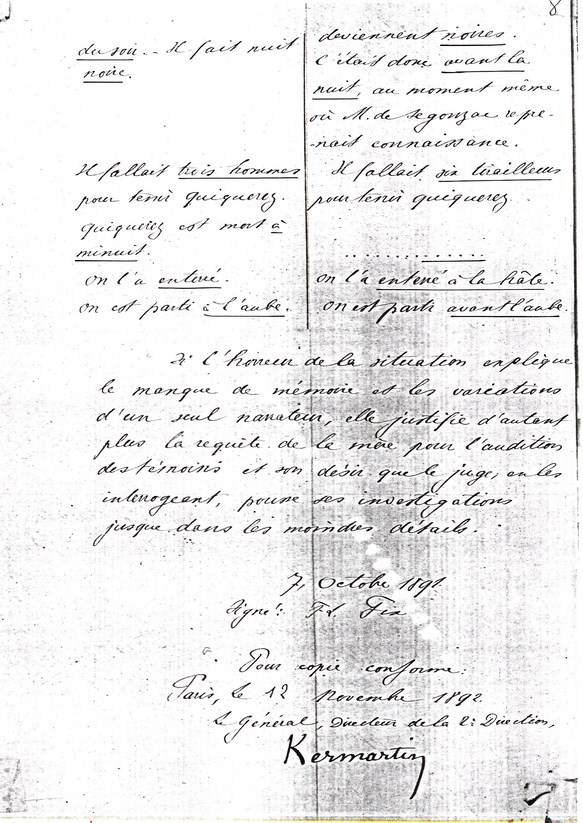 8
du soir. - Il fait nuit
noire.
Il fallait trois hommes
pour tenir Quiquerez.
Quiquerez est mort à
minuit.
On l'a enterré.
On est parti à l'aube.
deviennent noires.
C'était donc avant la
nuit, au moment même
où M. de Segonzac repre-
-nait connaissance.
Il fallait six tirailleurs
pour tenir Quiquerez.
. . . . . . . . . . . . .
On l'a enterré à la hâte.
On est parti avant l'aube.
Si l'horreur de la situation explique
le manque de mémoire et les variations
d'un seul narrateur, elle justifie d'autant
plus la requête de la mère pour l'audition
des témoins et son désir que le juge, en les
interrogeant, pousse ses investigations
jusque dans les moindres détails.
7 Octobre 1892
Signé: Fix
Pour copie conforme:
Paris, le 12 Novembre 1892.
Le Général, Directeur de la 2e Direction,
Kermartin